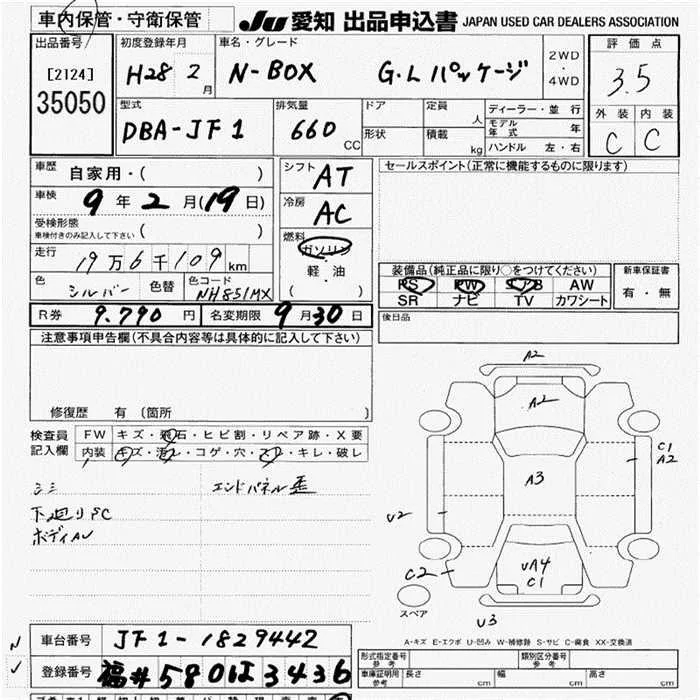 車内保管・守衛保管
JU 愛知 出品申込書 JAPAN USED CAR DEALERS ASSOCIATION
出品番号
[2124]
35050
初度登録年月
H28 2月
車名・グレード
N-BOX G・Lパッケージ
2WD
・
4WD
評価点
3.5
外装 内装
C C
型式
DBA-JF1
排気量
660 CC
ドア
形状
定員 人
積載 kg
ディーラー・並行
モデル年式 年
ハンドル 左・右
車歴 自家用・( )
車検 9年2月(19日)
受検形態
車検付きのみ記入して下さい ( )
走行
19万6千109km
色 シルバー 色替
色コード
NH851MX
シフト AT
冷房 AC
燃料
ガソリン
・
軽油
( )
セールスポイント(正常に機能するものに限ります)
装備品(純正品に限り○をつけてください)
PS PW エアB AW
SR ナビ TV カワシート
新車保証書
有・無
R券 9.790円 名変期限 9月30日
後日品
注意事項申告欄(不具合内容等は具体的に記入して下さい)
修復歴 有 〔箇所 〕
検査員
記入欄
FW キズ・飛石・ヒビ割・リペア跡・X要
内装 キズ・汚レ・コゲ・穴・スレ・キレ・破レ
シミ エンドパネル歪
下廻りSC
ボディAU
A2
A2
C1
A2
A3
U2
C2
UA4
C1
U3
スペア
A-キズ E-エクボ U-凹み W-補修跡 S-サビ C-腐食 XX-交換済
車台番号 JF1-1829442
登録番号 福井580は3436
形式指定番号 参考
類別区分番号 参考
車庫証明用 参考 長さ cm 幅 cm 高さ cm